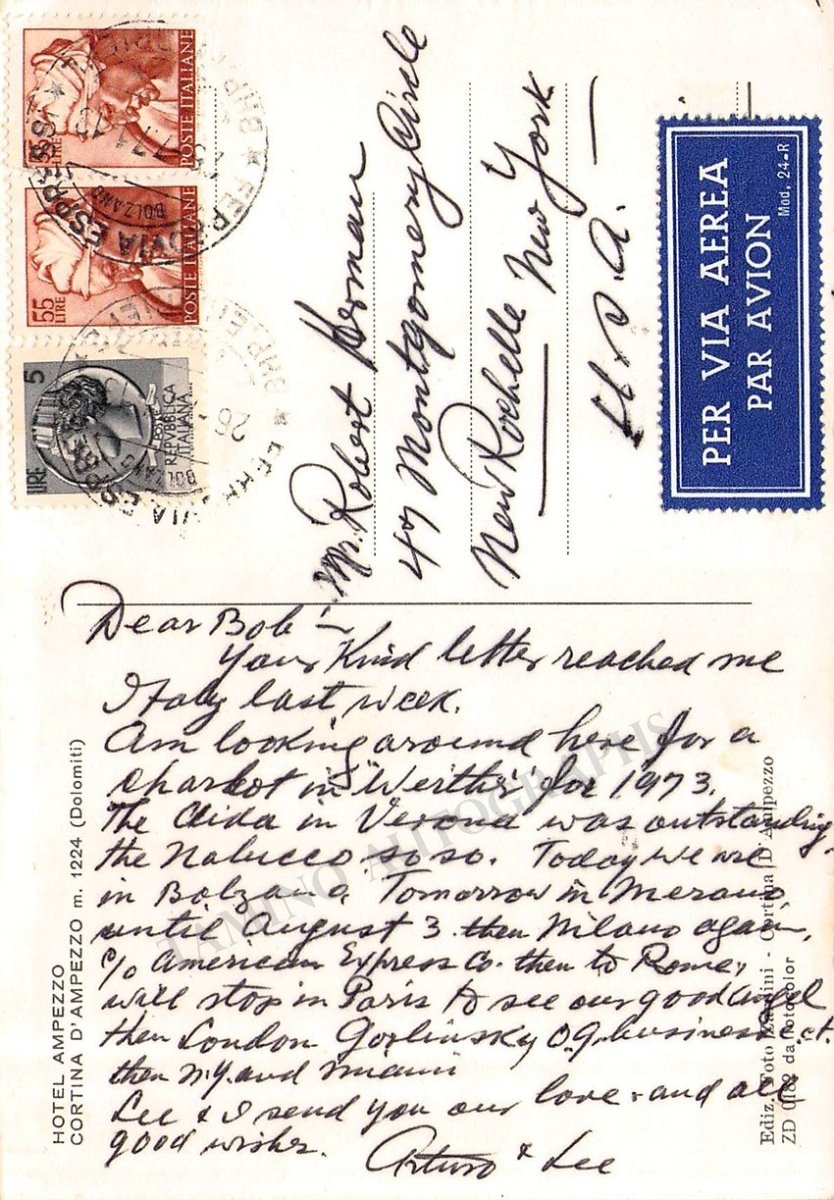 55
LIRE
POSTE ITALIANE
55
LIRE
POSTE ITALIANE
LIRE 5
POSTE
REPVBBLICA
ITALIANA
FERROVIA ESPRESSI
BOLZANO
BOLZANO
26
Mr. Robert Herman
47 Montgomery Circle
New Rochelle New York
U.S.A.
PER VIA AEREA
PAR AVION
Mod. 24-R
Dear Bob -
Your kind letter reached me
Italy last week.
Am looking around here for a
Charlot in "Werther" for 1973.
The Aida in Verona was outstanding,
the Nabucco so so. Today we are
in Bolzano, Tomorrow in Merano,
until August 3 then Milano again,
c/o American Express Co. then to Rome,
will stop in Paris to see our good angel
then London Gorlinsky O.G. business
then N.Y. and Miami
Lee & I send you our love and all
good wishes. Arturo & Lee
HOTEL AMPEZZO
CORTINA D'AMPEZZO m. 1224 (Dolomiti)
Ediz. Foto Zardini - Cortina D'Ampezzo
ZD 0188 da fotocolor
TAMINO AUTOGRAPHS